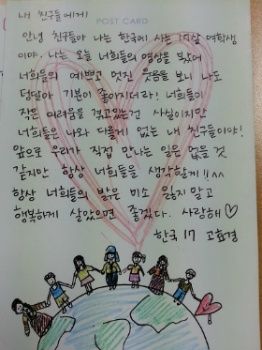 내 친구들에게!
POST CARD
안녕 친구들아 나는 한국에 사는 여학생
이야. 나는 오늘 너희들의 영상을 봤어
너희들의 예쁘고 멋진 웃음을 보니 나도
덩달아 기분이 좋아지더라! 너희들이
작은 어려움을 겪고있는건 사실이지만
너희들은 나와 다를게 없는 내 친구들이야!
앞으로 우리가 직접 만나는 일은 없을 것
같지만 항상 너희들을 생각할게!! ^^
항상 너희들의 밝은 미소 잃지 말고
행복하게 살았으면 좋겠다. 사랑해♡
한국 17 고효결